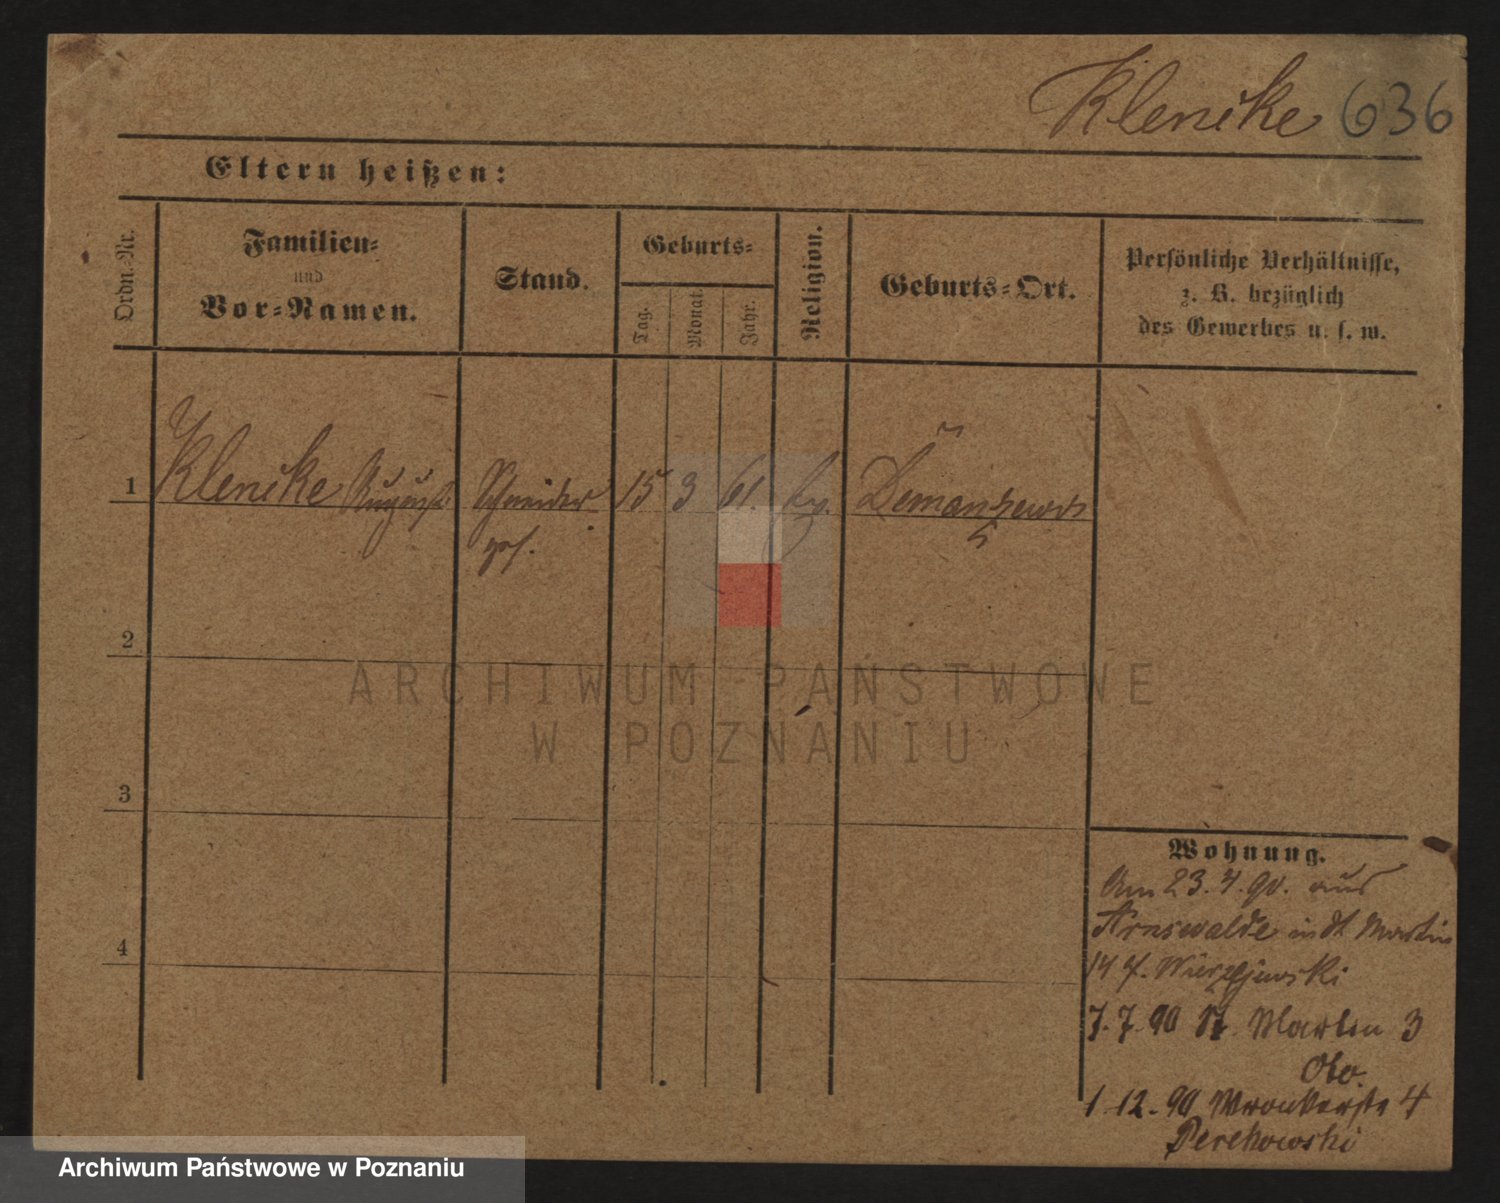 Klenike 636
Eltern heißen:
Ordn.-Nr.
Familien-
und
Vor-Namen.
Stand.
Geburts-
Tag.
Monat.
Jahr.
Religion.
Geburts-Ort.
Persönliche Verhältnisse,
z. B. bezüglich
des Gewerbes u. s. w.
1 Klenike August Schneider 15 3 61. ev.
2
ARCHIWUM PAŃSTWOWE
W POZNANIU
3
4
Wohnung.
Am 23. 4. 90. aus
Arnswalde in St Martin
14 Wierzejewski
7. 7. 90 St. Martin 3
1 12. 90 Wronkerstr 4
Perekowski
Archiwum Państwowe w Poznaniu